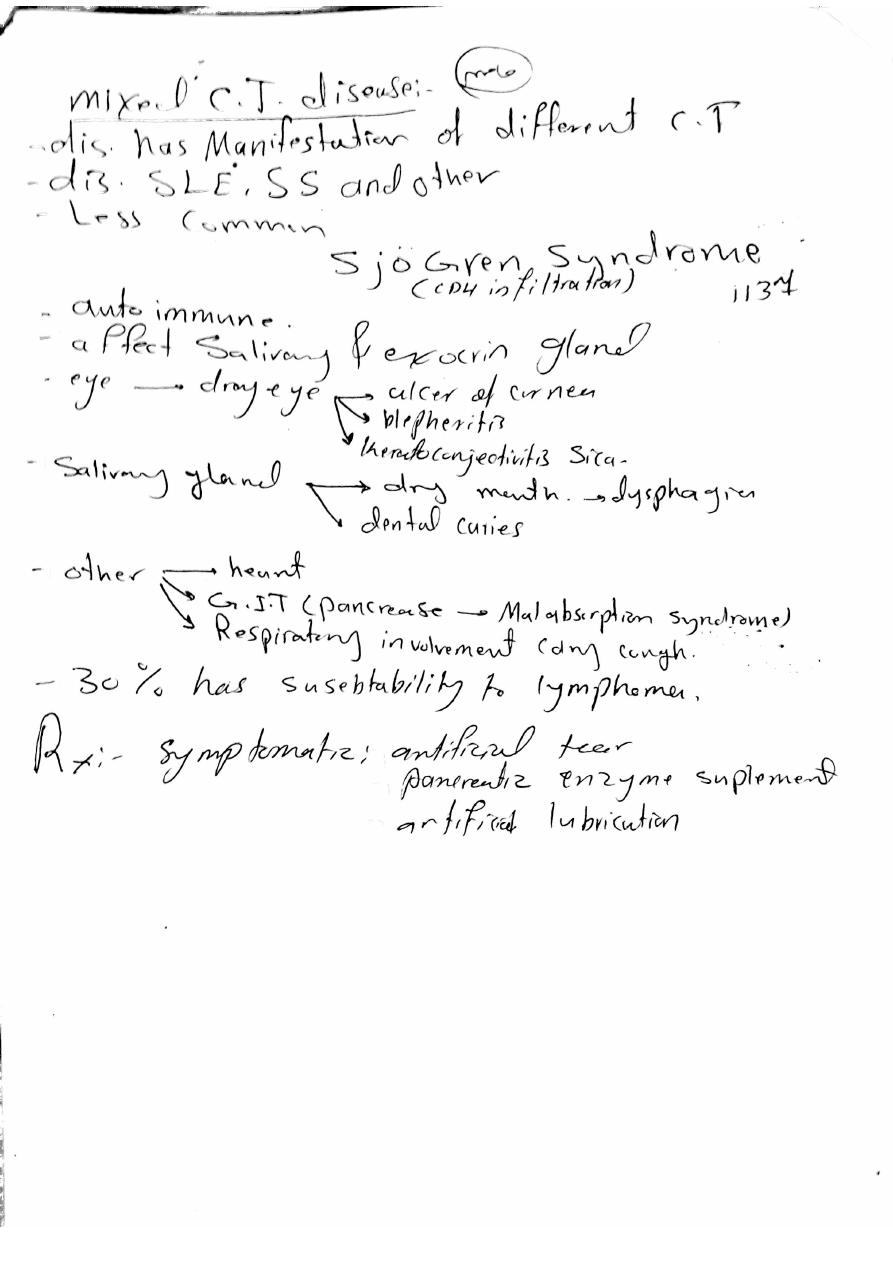 mixed C.T. disease:-
- dis. has Manifestation of different C.T
- dis. SLE, SS and other
- Less Common
Sjö Gren Syndrome
(CD4 infiltration)
- auto immune.
- affect Salivary & exocrin gland
- eye → dray eye → ulcer of cornea
→ blepheritis
→ keratoconjectivitis Sica-
- Salivary gland → dry mouth. → dysphagia
→ dental caries
- other → heart
→ G.I.T (pancrease → Malabsorption syndrome)
→ Respiratory involvement (dry cough.
- 30% has susebtability to lymphoma.
Rx:- symptomatic: artificial tear
pancreatic enzyme suplement
artificial lubrication